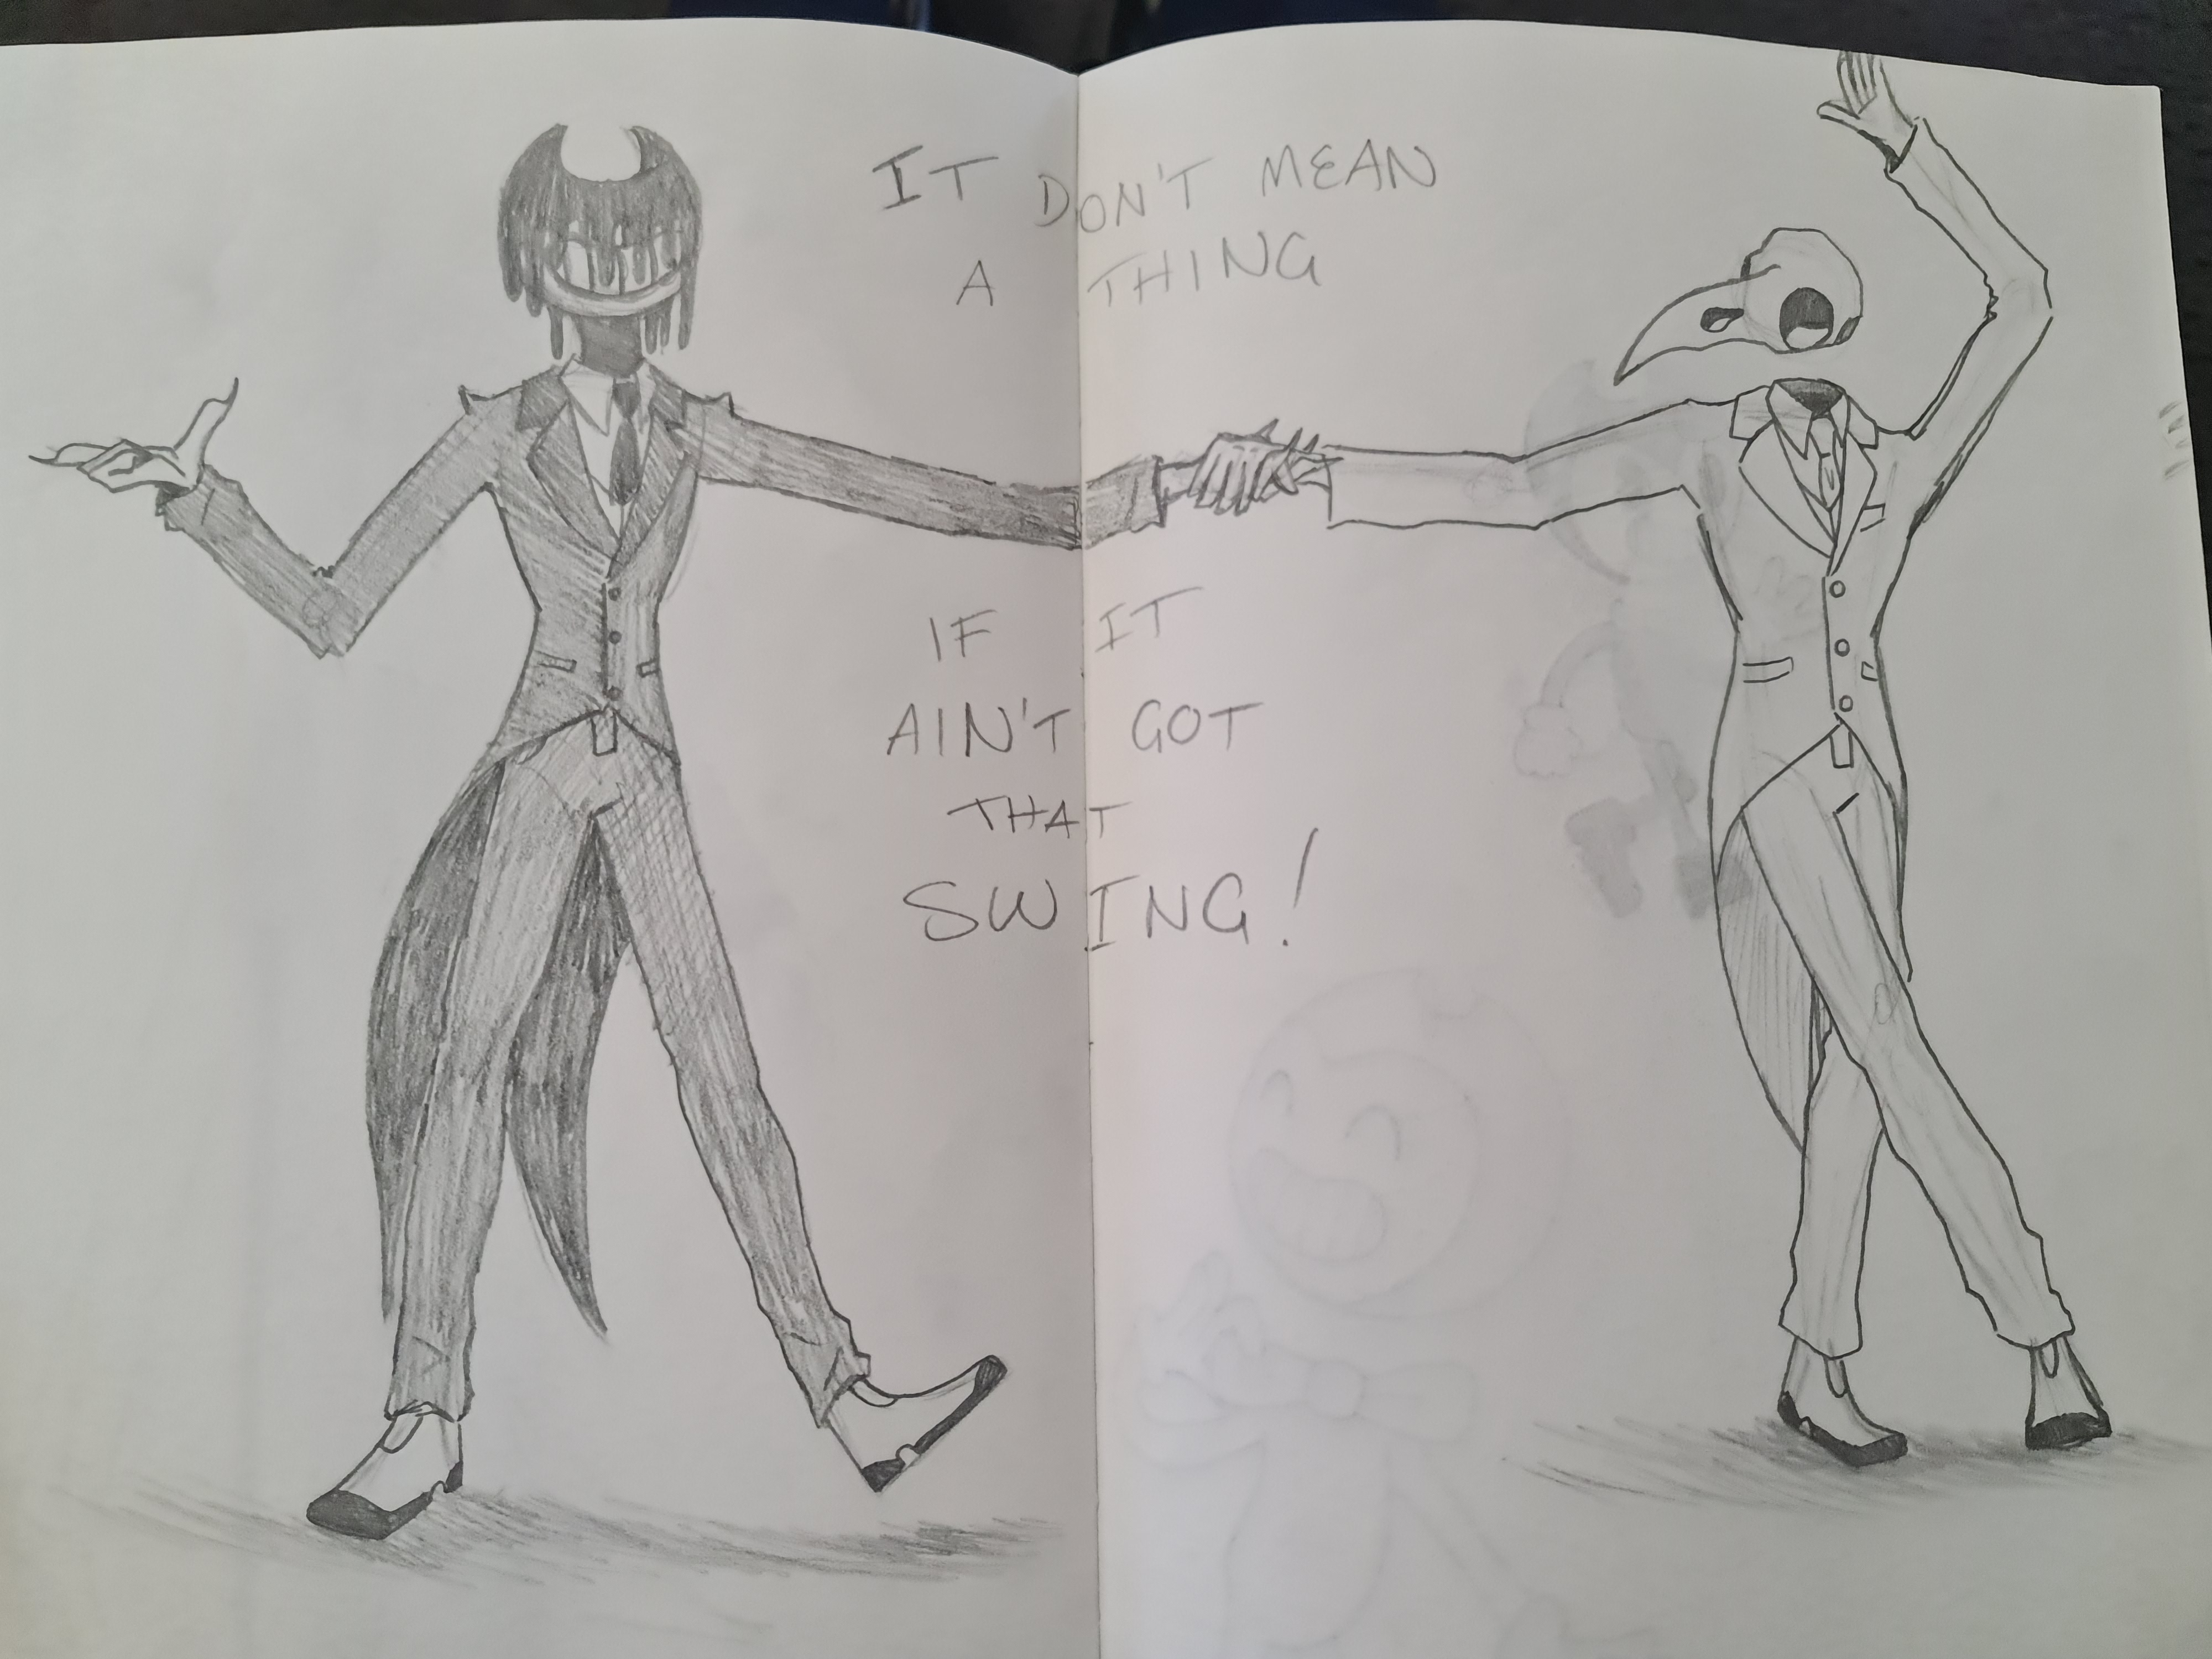 IT DON'T MEAN
A THING
IF IT
AIN'T GOT
THAT
SWING!